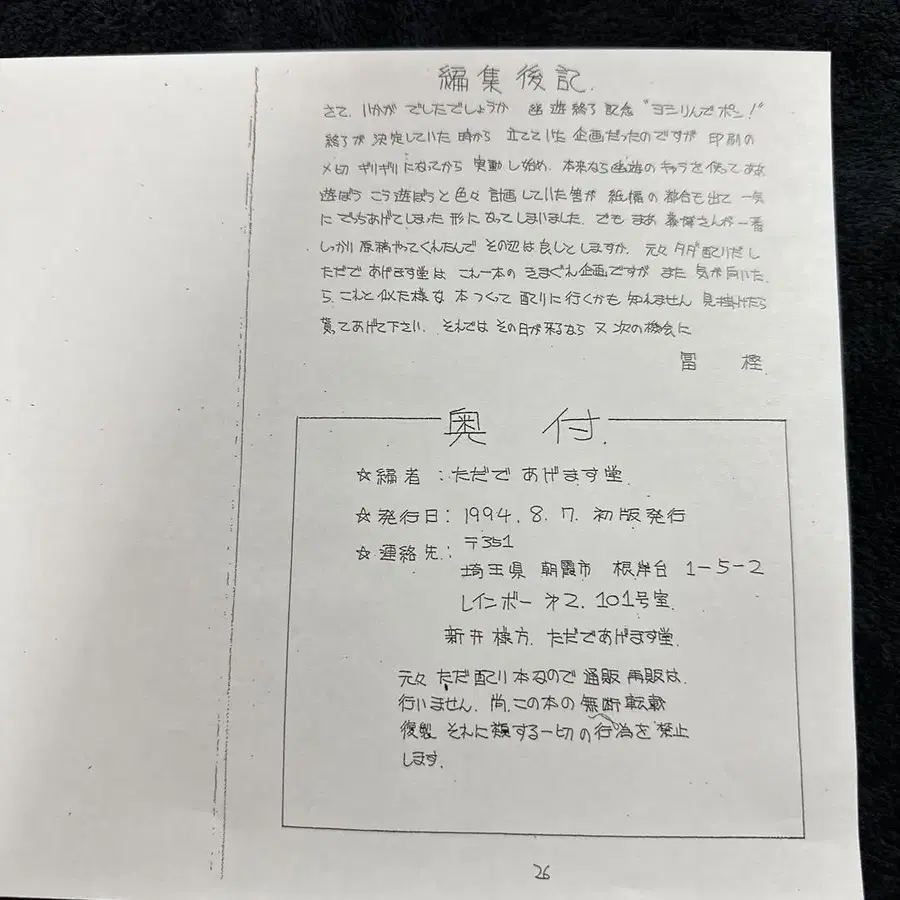 編集後記.
さて、いかが でしたでしょうか 幽遊終了記念 "ヨシりんでポン!"
終了が 決定していた 時から 立てていた 企画だったのですが 印刷の
〆切 ギリギリになってから 実動し始め、本来なら幽遊の キャラを使って ああ
遊ぼう こう遊ぼうと色々 計画していた筈が 紙幅の 都合も出て 一気
に でっちあげてしまった 形に なってしまいました。でも まあ 義博さんが一番
しっかり 原稿やってくれたんで その辺は 良しとしますか。元々 タダ配りだし
ただで あげます堂は これ一本の きまぐれ企画ですが また 気が向いた
ら、これと 似た様な 本つくって 配りに行くかも 知れません 見掛けたら
貰ってあげて下さい。それでは その日が来るなら 又 次の機会に
冨 樫
奥 付.
☆編者:ただで あげます堂.
☆発行日:1994.8.7.初版発行
☆連絡先:〒351
埼玉県 朝霞市 根岸台 1-5-2
レインボー 才2.101号室.
新井様方.ただであげます堂.
元々 ただ配り本なので 通販 再販は.
行いません.尚、この本の 無断転載
複製 それに類する一切の行為を 禁止
します.
26